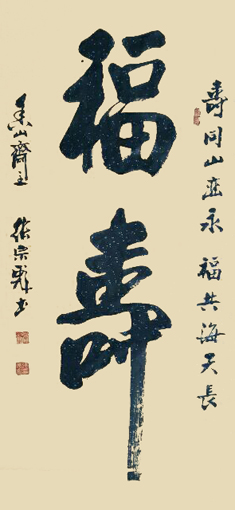 壽同山岳永 福共海天長
福壽
香山齋主 徐宗	書